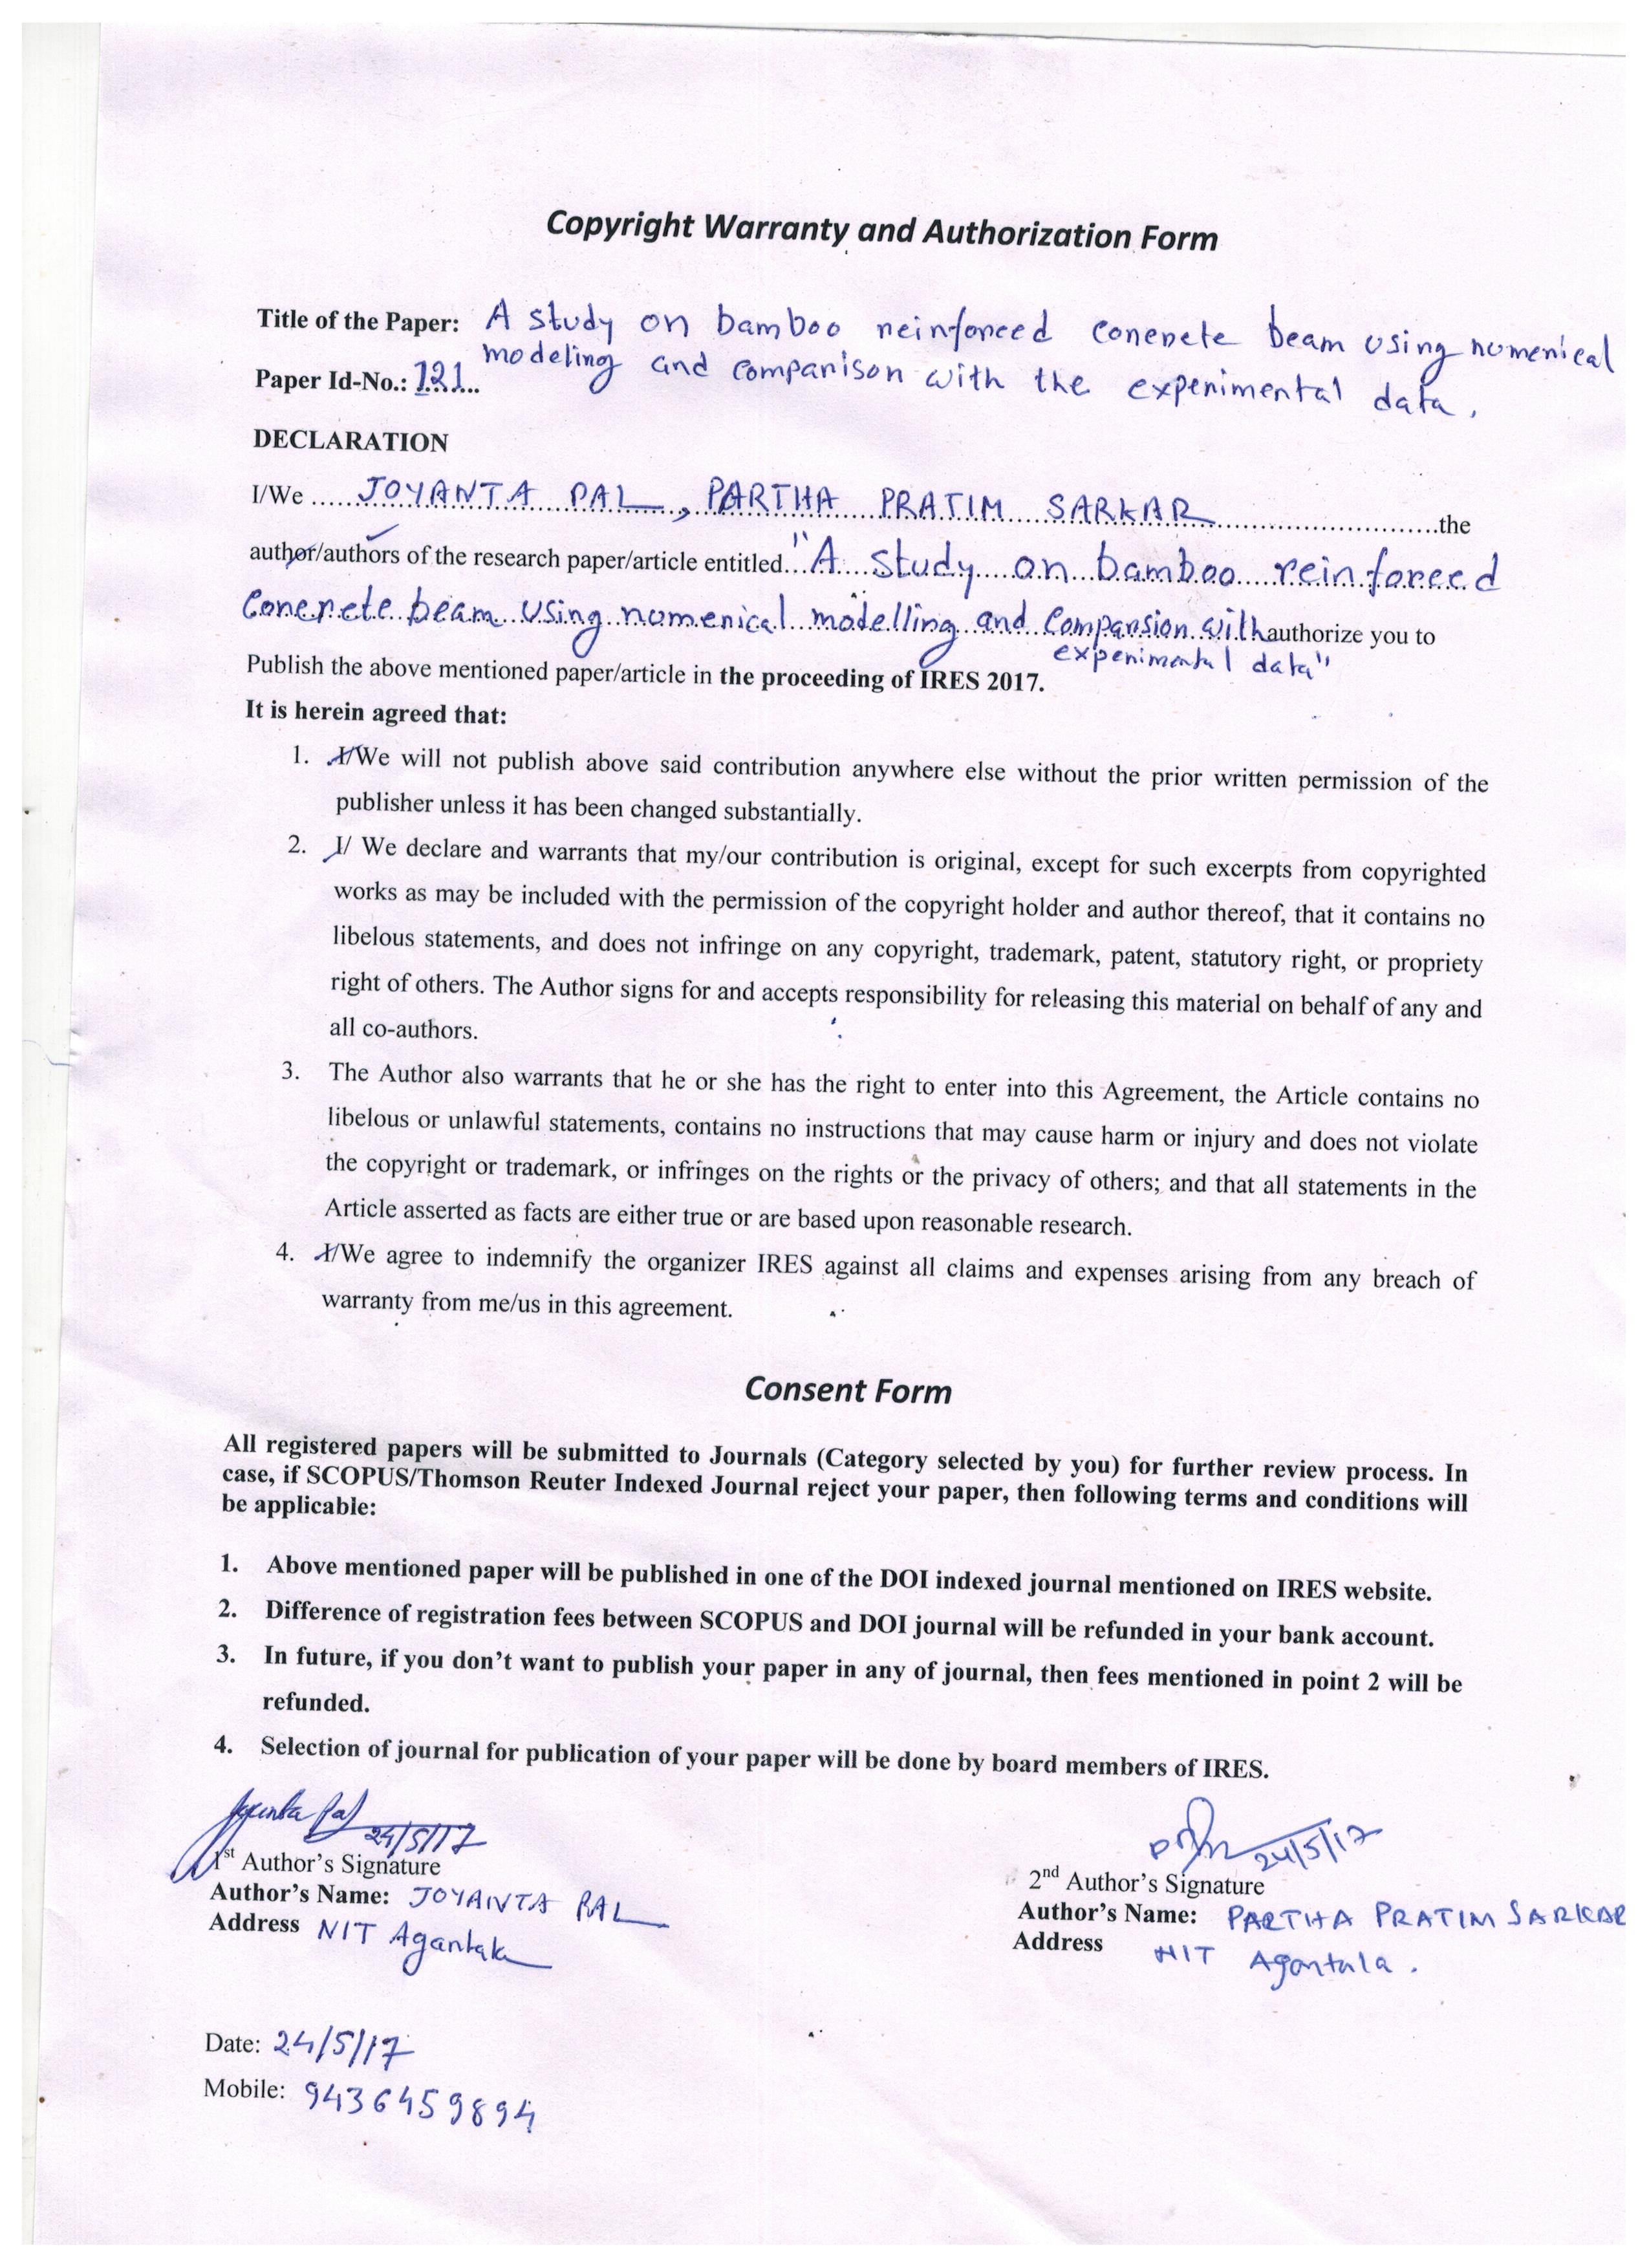 Copyright Warranty and Authorization Form
Title of the Paper: A study on bamboo reinforced concrete beam using numerical
modeling and comparison with the experimental data.
Paper Id-No.: 121
DECLARATION
I/We ..... JOYANTA PAL, PARTHA PRATIM SARKAR ..... the
author/authors of the research paper/article entitled... "A study on bamboo reinforced
Concrete beam using numerical modelling and Comparsion with authorize you to
experimental data"
Publish the above mentioned paper/article in the proceeding of IRES 2017.
It is herein agreed that:
1. I/We will not publish above said contribution anywhere else without the prior written permission of the
publisher unless it has been changed substantially.
2. I/ We declare and warrants that my/our contribution is original, except for such excerpts from copyrighted
works as may be included with the permission of the copyright holder and author thereof, that it contains no
libelous statements, and does not infringe on any copyright, trademark, patent, statutory right, or propriety
right of others. The Author signs for and accepts responsibility for releasing this material on behalf of any and
all co-authors.
3. The Author also warrants that he or she has the right to enter into this Agreement, the Article contains no
libelous or unlawful statements, contains no instructions that may cause harm or injury and does not violate
the copyright or trademark, or infringes on the rights or the privacy of others; and that all statements in the
Article asserted as facts are either true or are based upon reasonable research.
4. I/We agree to indemnify the organizer IRES against all claims and expenses arising from any breach of
warranty from me/us in this agreement.
Consent Form
All registered papers will be submitted to Journals (Category selected by you) for further review process. In
case, if SCOPUS/Thomson Reuter Indexed Journal reject your paper, then following terms and conditions will
be applicable:
1. Above mentioned paper will be published in one of the DOI indexed journal mentioned on IRES website.
2. Difference of registration fees between SCOPUS and DOI journal will be refunded in your bank account.
3. In future, if you don't want to publish your paper in any of journal, then fees mentioned in point 2 will be
refunded.
4. Selection of journal for publication of your paper will be done by board members of IRES.
Joyanta Pal
24/5/17
1st Author's Signature
Author's Name: JOYANTA PAL
Address NIT Agartala
24/5/17
2nd Author's Signature
Author's Name: PARTHA PRATIM SARKAR
Address NIT Agartala.
Date: 24/5/17
Mobile: 9436459894